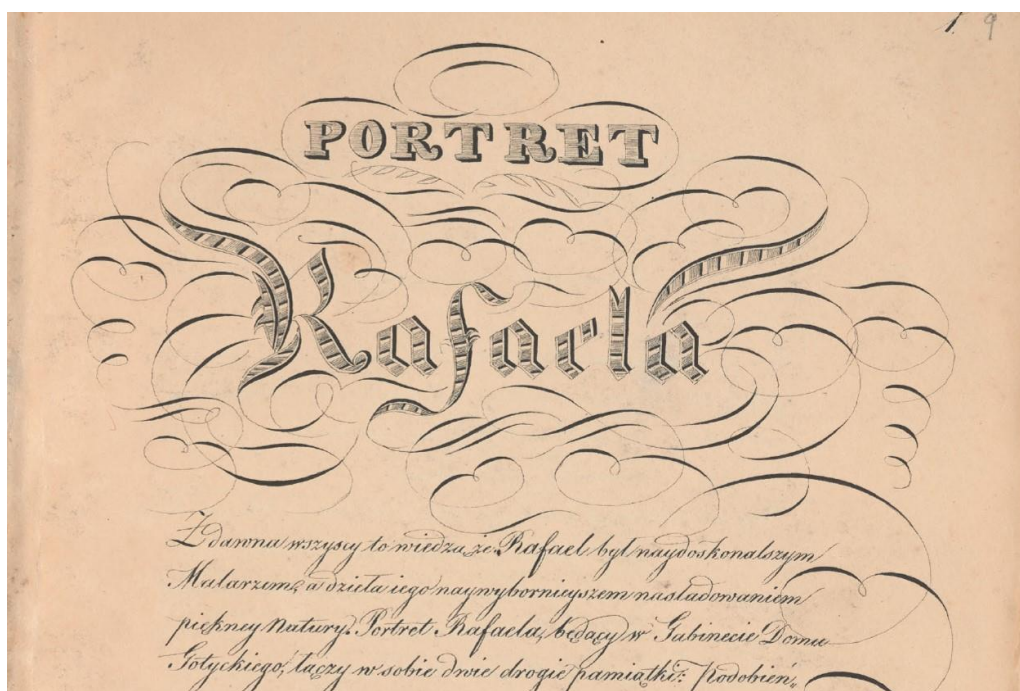 1. 9
PORTRET
Rafaela
Z dawna wszyscy to wiedzą, że Rafael był naydoskonalszym
Malarzem, a dzieła iego naywybornieyszem nasladowaniem
piękney Natury. Portret Rafaela, będący w Gabinecie Domu
Gotyckiego, łączy w sobie dwie drogie pamiątki: Podobień„